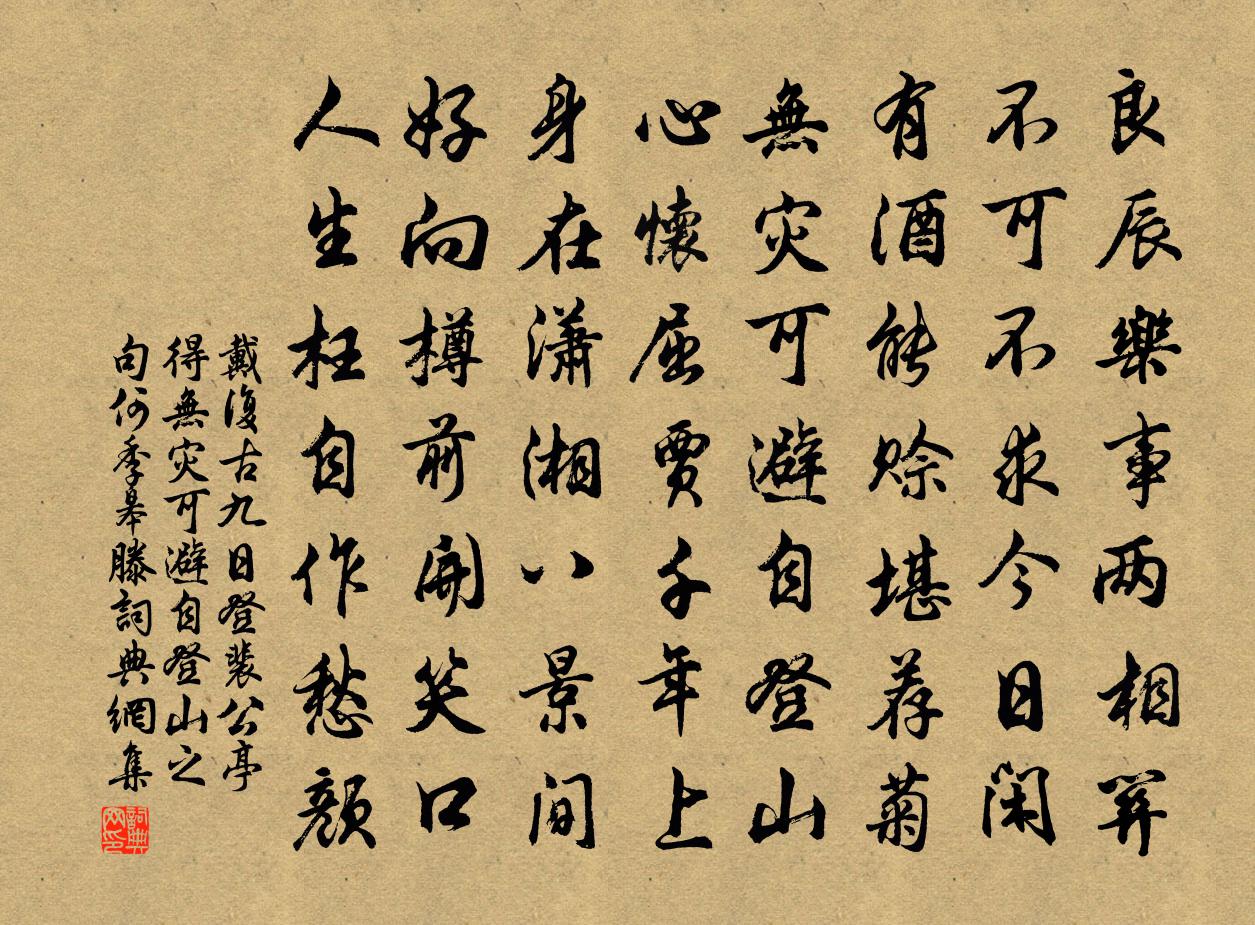 良辰樂事两相關
不可不求今日闲
有酒能赊堪荐菊
無灾可避自登山
心懷屈賈千年上
身在潇湘八景间
好向樽前開笑口
人生枉自作愁顔
戴復古九日登裴公亭
得無灾可避自登山之
句何季皋滕詞典網集
詞典
网印